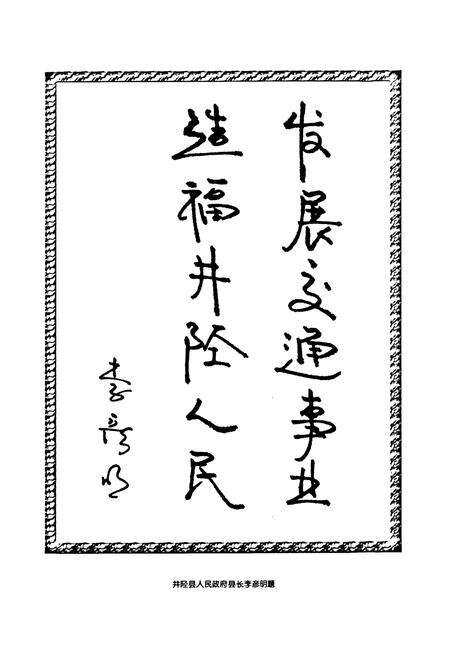 发展交通事业
造福井陉人民
李彦明
井陉县人民政府县长李彦明题